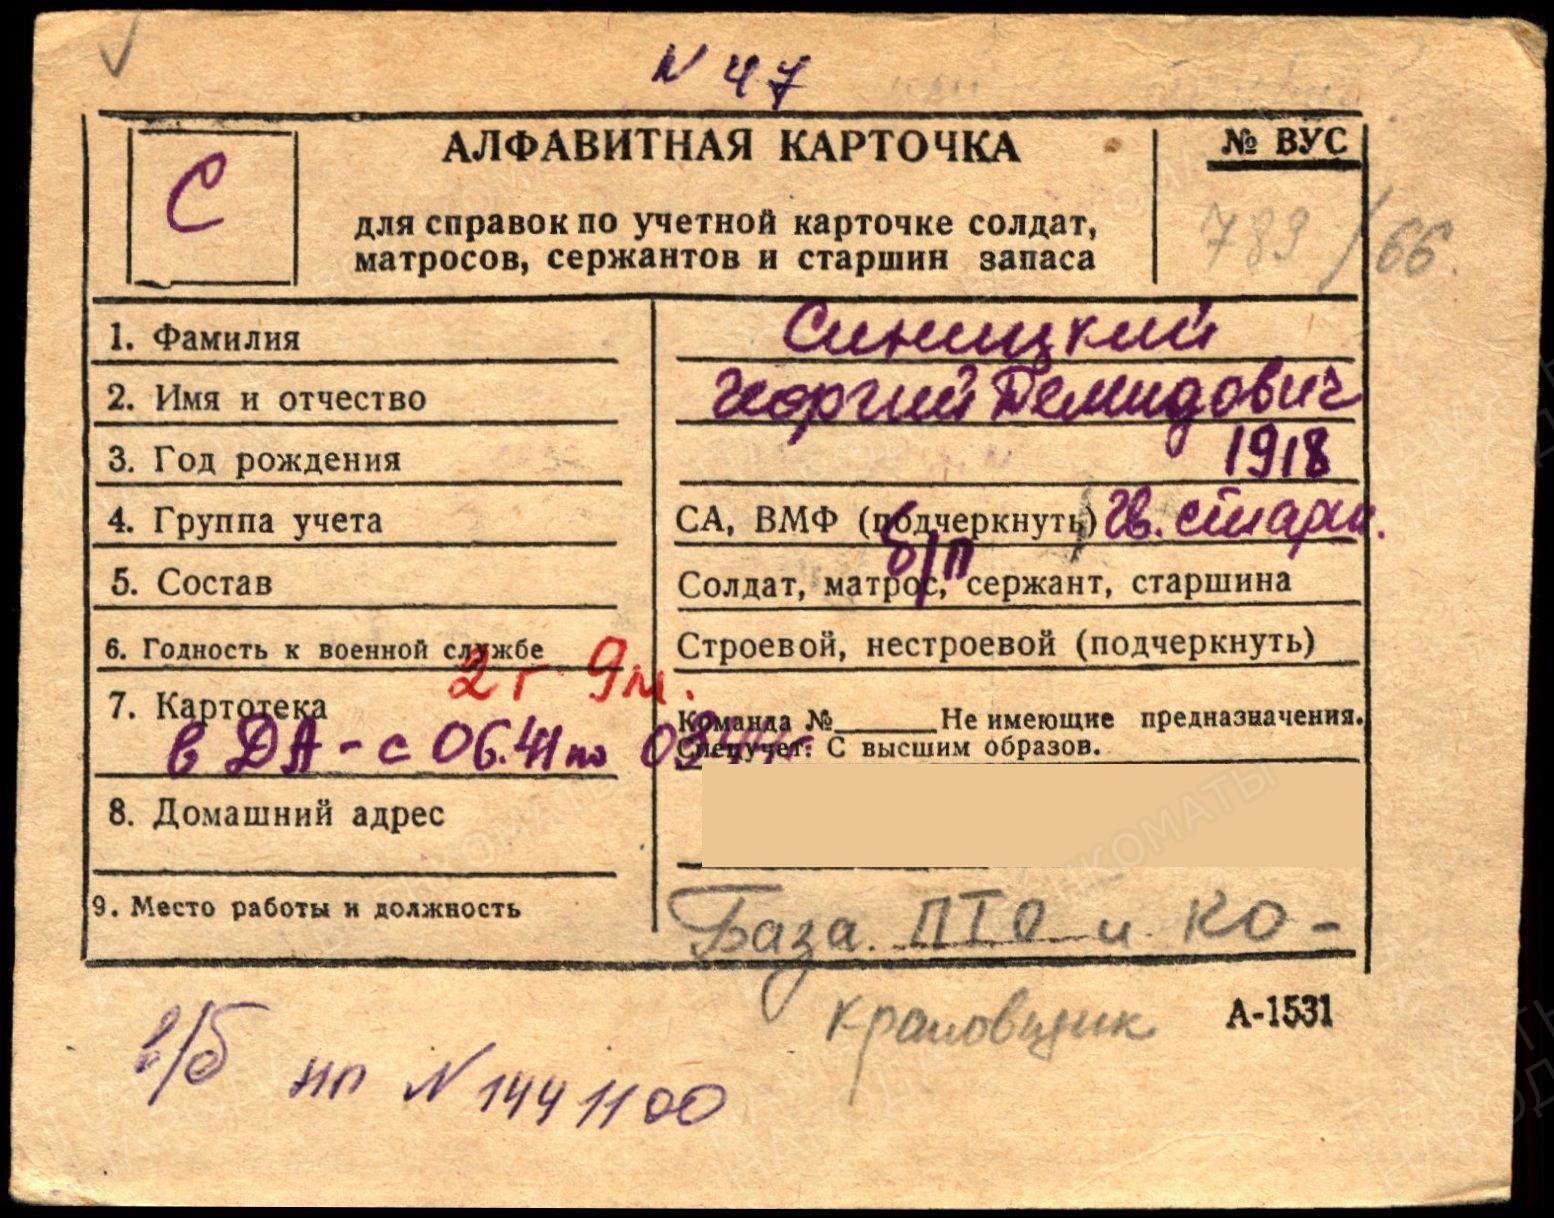 N 47
С
АЛФАВИТНАЯ КАРТОЧКА
для справок по учетной карточке солдат,
матросов, сержантов и старшин запаса
№ ВУС
789/66.
1. Фамилия Синицкий
2. Имя и отчество Георгий Демидович
3. Год рождения 1918
4. Группа учета СА, ВМФ (подчеркнуть) Гв. старш.
б/п
5. Состав Солдат, матрос, сержант, старшина
6. Годность к военной службе Строевой, нестроевой (подчеркнуть)
2 г 9 м.
7. Картотека Команда №______ Не имеющие предназначения.
Спецучет: С высшим образов.
в ДА - с 06.41 по
8. Домашний адрес
9. Место работы и должность База ПТО и КО -
крановщик
А-1531
в/б нп N 1441100